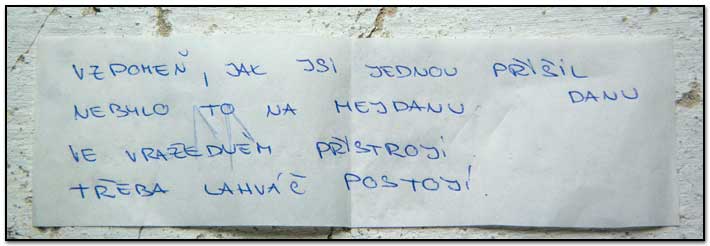 VZPOMEŇ, JAK JSI JEDNOU PŘIŠIL
DANU
NEBYLO TO NA MEJDANU
VE VRAŽEDNÉM PŘÍSTROJI
TŘEBA LAHVÁČ POSTOJÍ.